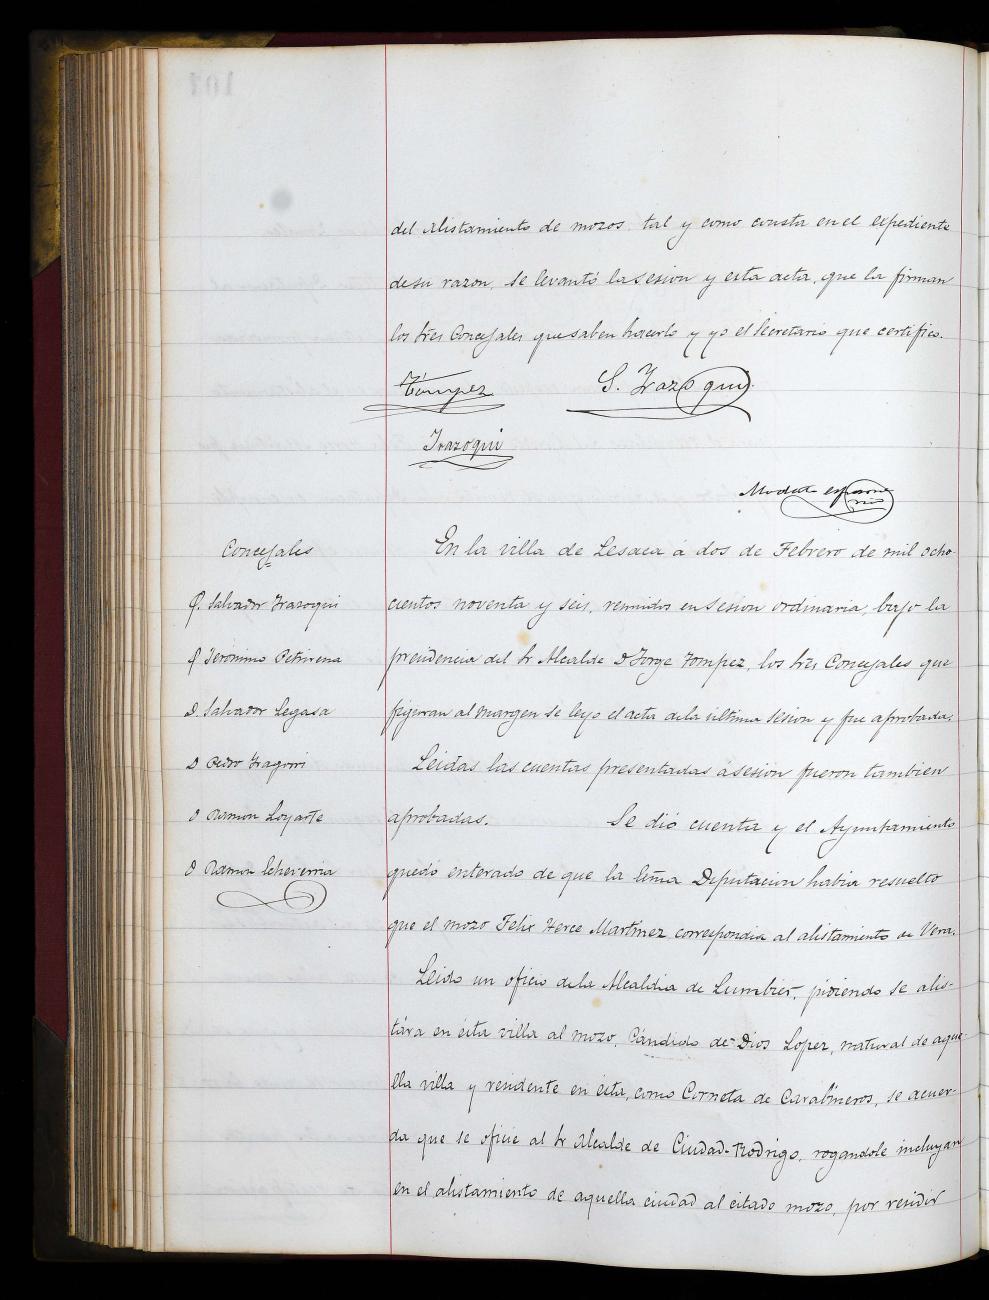 del alistamiento de mozos tal y como consta en el expediente
de su razon, se levantó la sesion y esta acta, que la firman
los tres Concejales que saben hacerlo y yo el Secretario que certifico.
Tompez S. Irazoqui
Irazoqui
Modesto
Concejales
D. Salvador Irazoqui
D Jerónimo Petrirena
D. Salvador Legasa
D Pedro
D Ramon Loyarte
D Ramon Echeverria
En la villa de Lesaca á dos de Febrero de mil ocho-
cientos noventa y seis, reunidos en sesion ordinaria, bajo la
presidencia del Sr Alcalde D Jorge Tompez, los tres Concejales que
figuran al margen se leyo el acta de la última sesion y fue aprobada.
Leidas las cuentas presentadas á sesion fueron tambien
aprobadas. Se dió cuenta y el Ayuntamiento
quedó enterado de que la Excma Diputacion habia resuelto
que el mozo Felix Herce Martinez correspondia al alistamiento de Vera.
Leido un oficio de la Alcaldia de Lumbier, pidiendo se alis-
tára en esta villa al mozo, Cándido de Dios Lopez, natural de aque-
lla villa y residente en esta, como Corneta de Carabineros, se acuer-
da que se oficie al Sr Alcalde de Ciudad-Rodrigo, rogandole incluyan
en el alistamiento de aquella ciudad al citado mozo, por residir